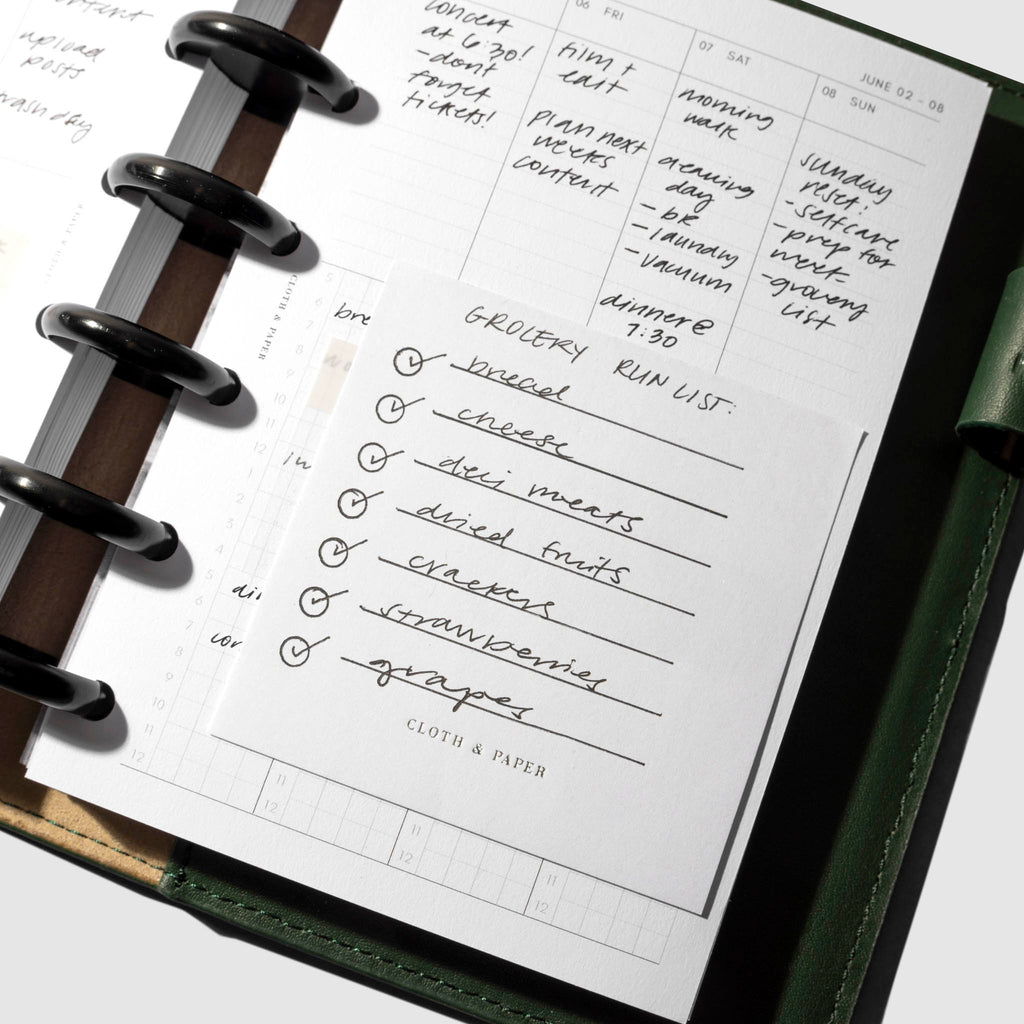 upload
posts
trash day
concert
at 6:30!
-don't
forget
tickets!
06 FRI
film +
edit
plan next
weeks
content
07 SAT
morning
walk
cleaning
day
-br
-laundry
-vacuum
dinner @
7:30
JUNE 02 - 08
08 SUN
sunday
reset:
-selfcare
-prep for
week
-grocery
list
CLOTH & PAPER
5
6
7
8
9
10
11
12
1
2
3
4
5
6
7
8
9
10
11
12
GROCERY RUN LIST:
bread
cheese
deli meats
dried fruits
crackers
strawberries
grapes
CLOTH & PAPER
11
12
11
12
11
12